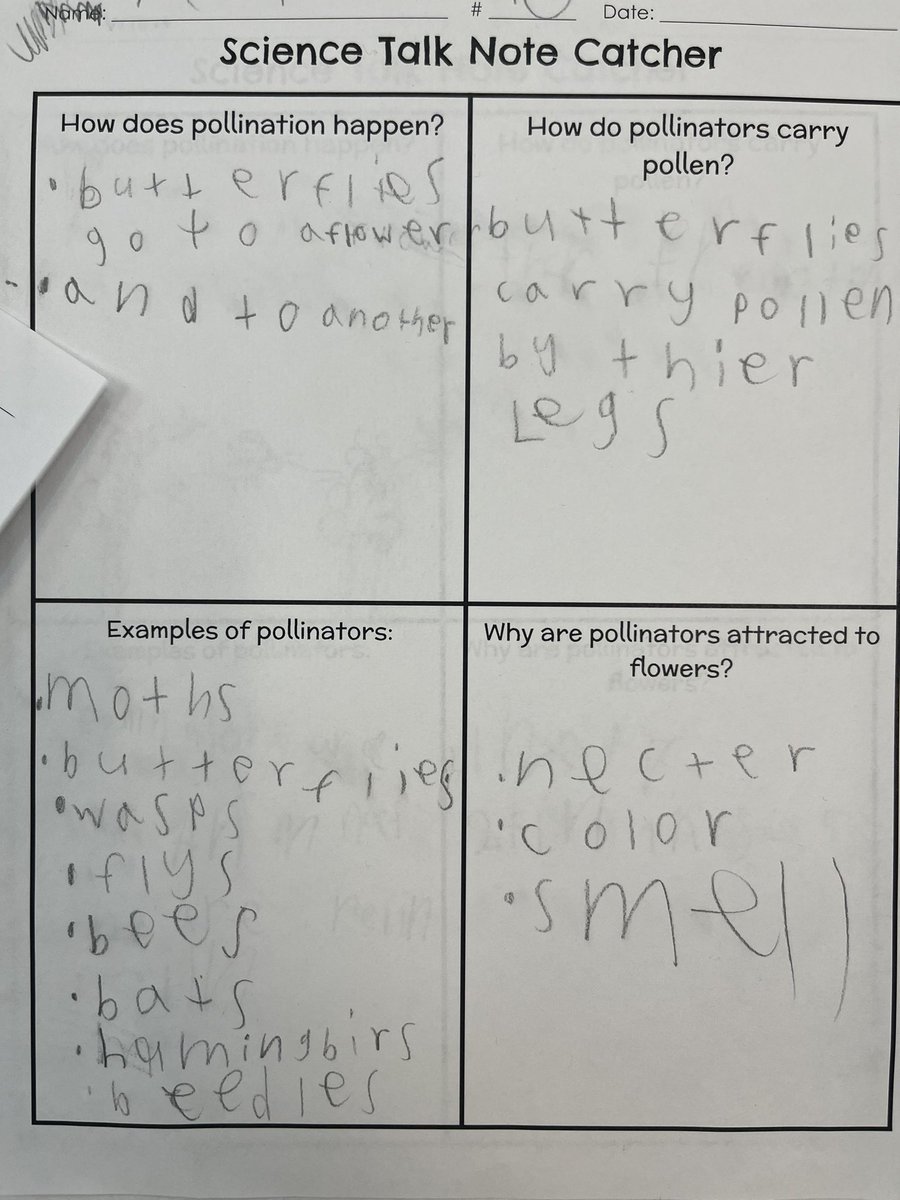 Name: # Date:
Science Talk Note Catcher
How does pollination happen?
• butterflies
go to a flower
• and to another
How do pollinators carry
pollen?
butterflies
carry pollen
by thier
Legs
Examples of pollinators:
• moths
• butterflies
• wasps
• flys
• bees
• bats
• hamingbirs
• beedles
Why are pollinators attracted to
flowers?
• necter
• color
• smell